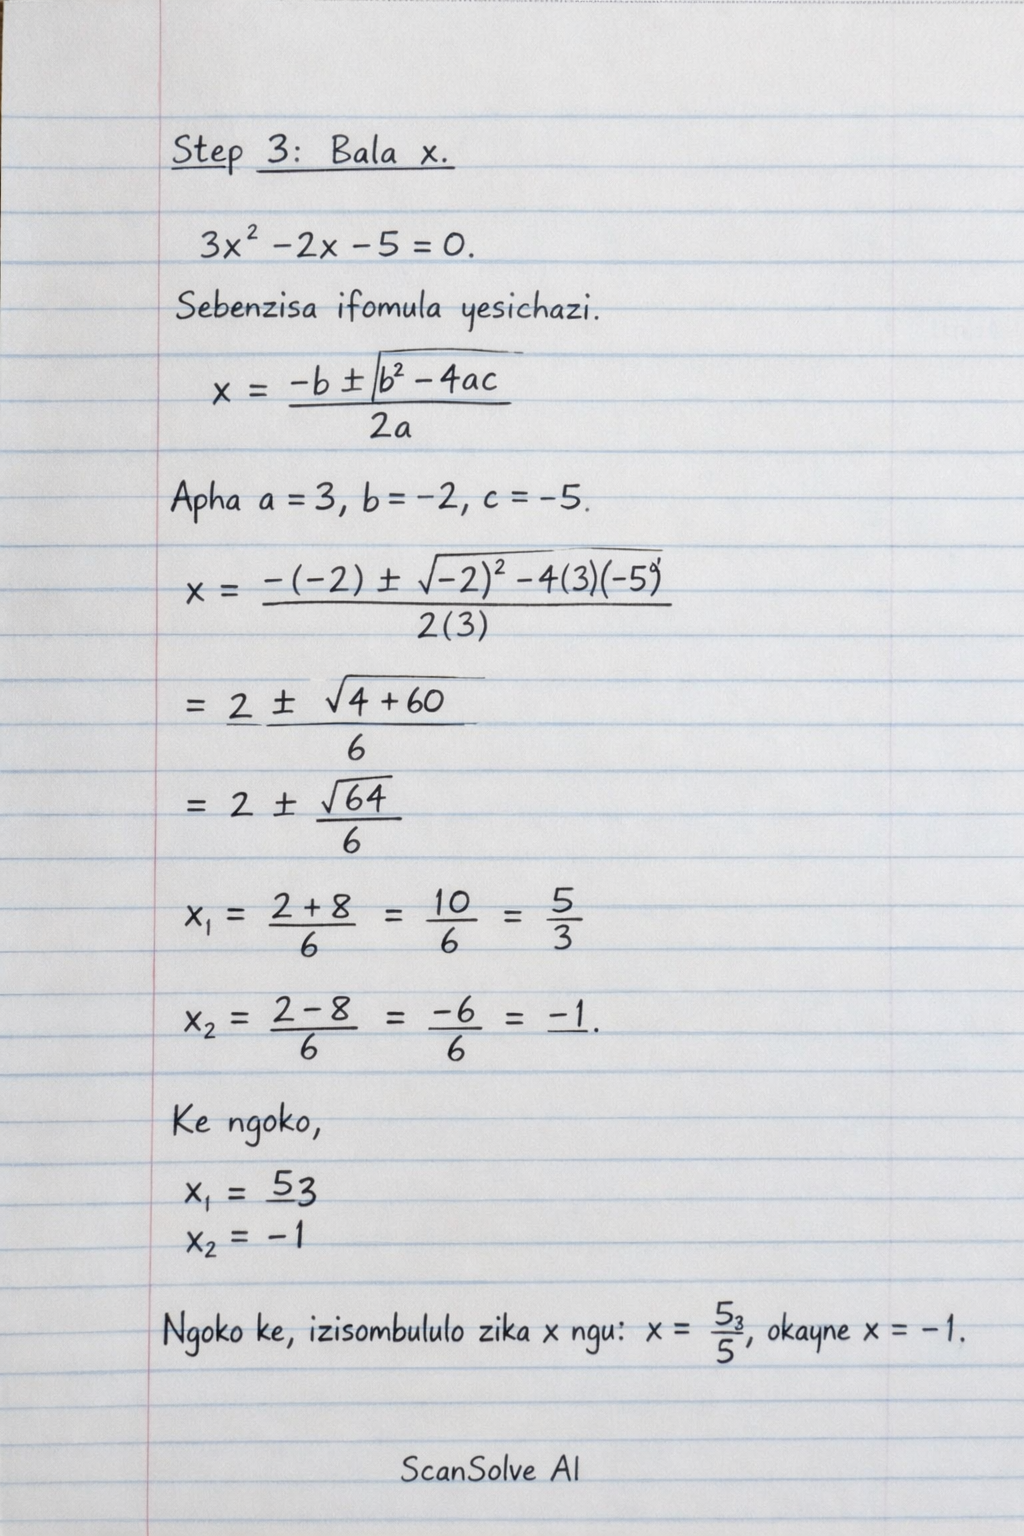 Step 3: Bala x.
3x² − 2x − 5 = 0.
Sebenzisa ifomula yesichazi.
x = (−b ± √(b² − 4ac)) / 2a
Apha a = 3, b = −2, c = −5.
x = (−(−2) ± √−2)² − 4(3)(−5)) / 2(3)
= (2 ± √(4 + 60)) / 6
= 2 ± √64 / 6
x₁ = (2 + 8)/6 = 10/6 = 5/3
x₂ = (2 − 8)/6 = −6/6 = −1.
Ke ngoko,
x₁ = 53
x₂ = −1
Ngoko ke, izisombululo zika x ngu: x = 5₃/5, okayne x = −1.
ScanSolve AI